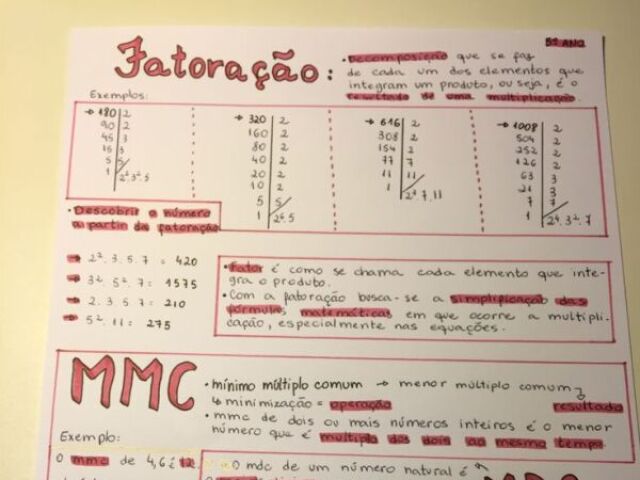 Fatoração:
5º ANO
• Decomposição que se faz
de cada um dos elementos que
integram um produto, ou seja, é o
resultado de uma multiplicação.
Exemplos:
→ 180 | 2
90 | 2
45 | 3
15 | 3
5 | 5
1 | 2².3².5
→ 320 | 2
160 | 2
80 | 2
40 | 2
20 | 2
10 | 2
5 | 5
1 | 2⁶.5
→ 616 | 2
308 | 2
154 | 2
77 | 7
11 | 11
1 | 2³.7.11
→ 1008 | 2
504 | 2
252 | 2
126 | 2
63 | 3
21 | 3
7 | 7
1 | 2⁴.3².7
• Descobrir o número
a partir da fatoração
→ 2².3.5.7 = 420
→ 3².5².7 = 1575
→ 2.3.5.7 = 210
→ 5².11 = 275
• Fator é como se chama cada elemento que inte-
gra o produto.
• Com a fatoração busca-se a simplificação das
fórmulas matemáticas em que ocorre a multipli-
cação, especialmente nas equações.
MMC
• mínimo múltiplo comum → menor múltiplo comum
↳ minimização = operação
resultado
• mmc de dois ou mais números inteiros é o menor
número que é multiplo dos dois ao mesmo tempo.
Exemplo:
O mmc de 4,6 é 12.
O mdc de um número natural é